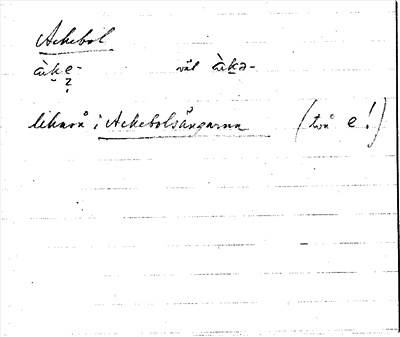 Ackebol
àk̠e̠- väl àk̠ə-
?
likaså i Ackebolsängarna (två e!)